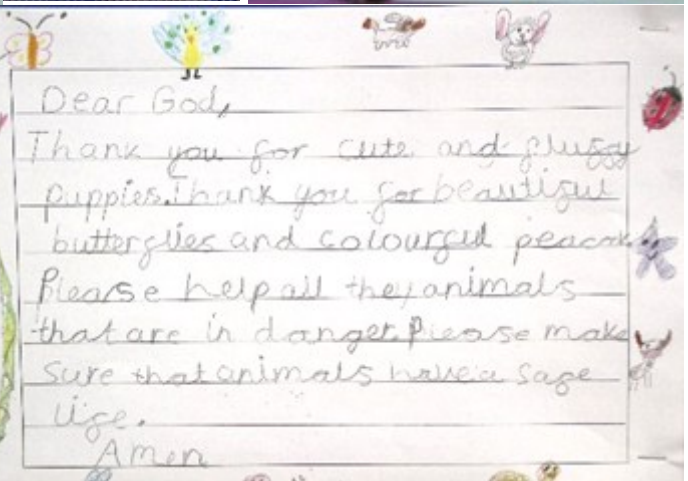 Dear God,
Thank you for cute and fluffy
puppies. Thank you for beautiful
butterflies and colourful peacock
Please help all they animals
that are in danger. Please make
sure that animals have a safe
life.
Amen